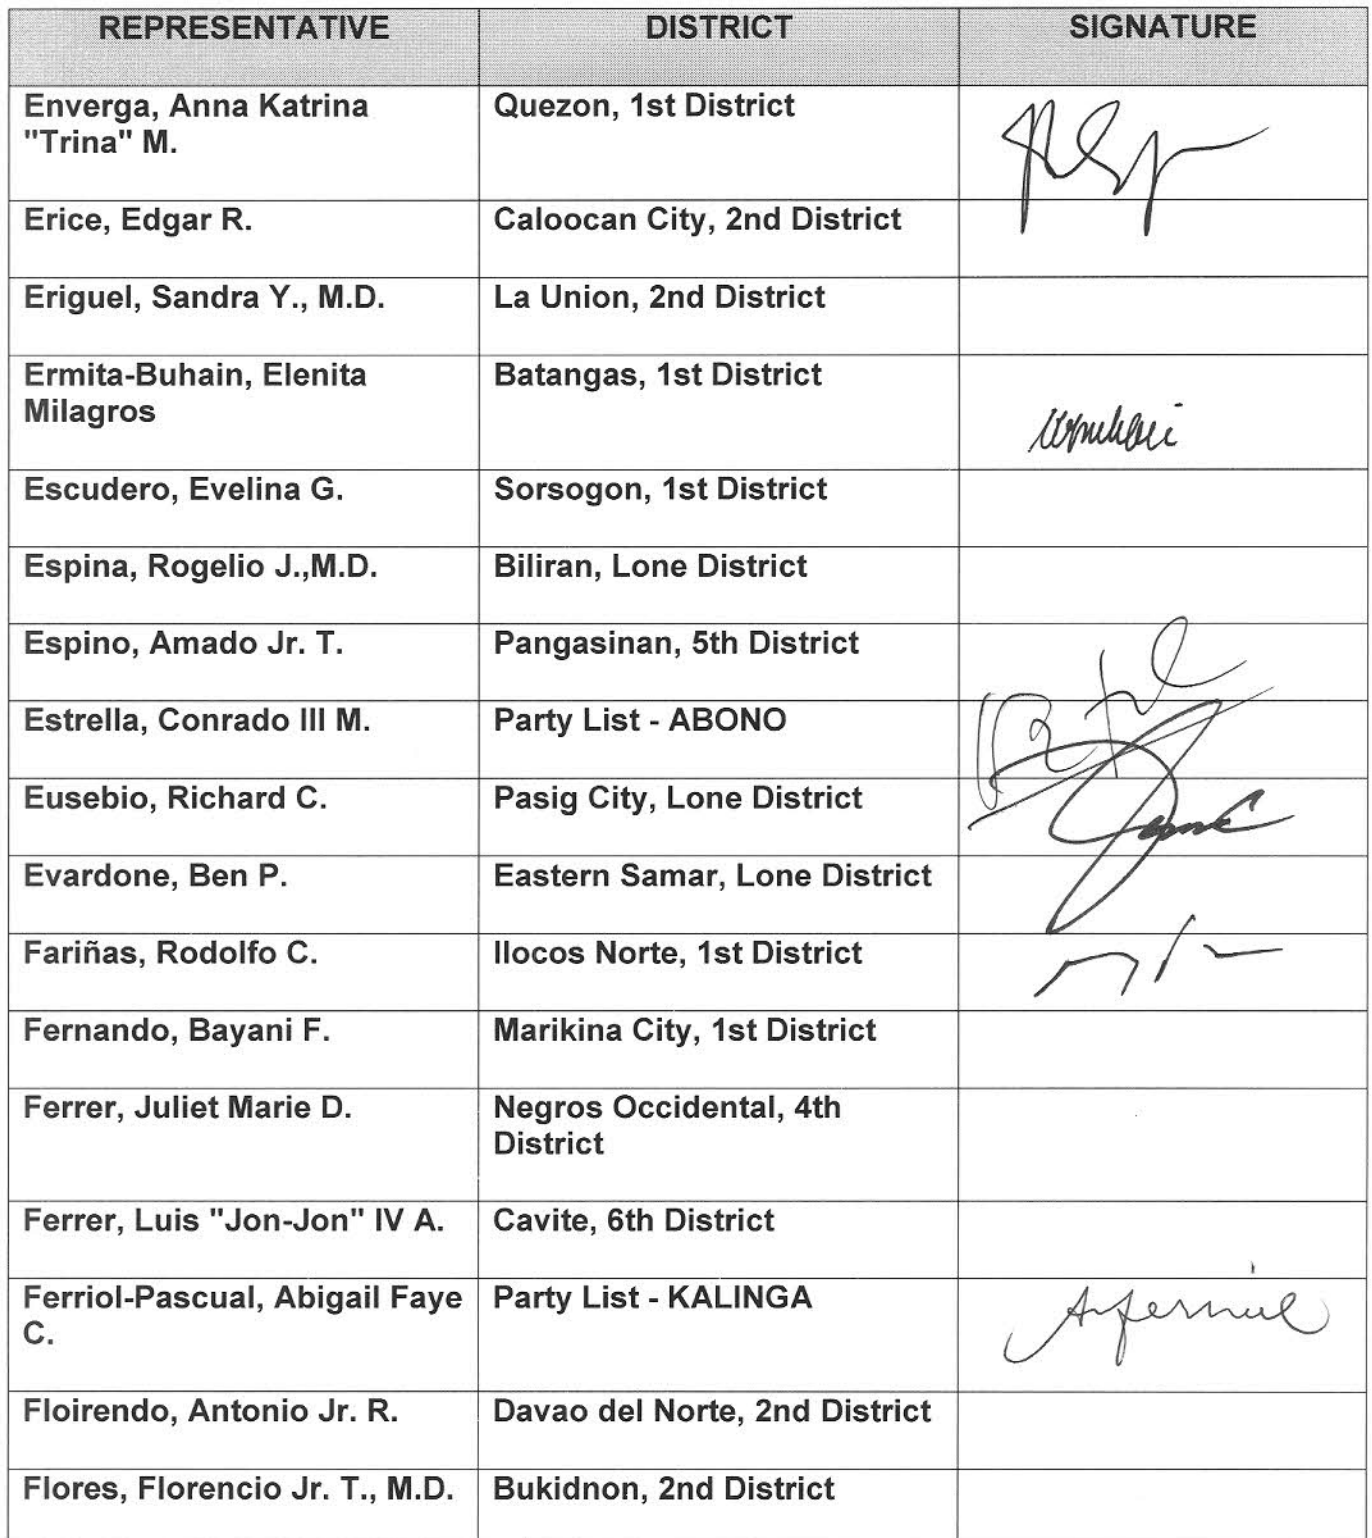 REPRESENTATIVE DISTRICT SIGNATURE
Enverga, Anna Katrina Quezon, 1st District
"Trina" M.
Erice, Edgar R. Caloocan City, 2nd District
Eriguel, Sandra Y., M.D. La Union, 2nd District
Ermita-Buhain, Elenita Batangas, 1st District
Milagros
Escudero, Evelina G. Sorsogon, 1st District
Espina, Rogelio J.,M.D. Biliran, Lone District
Espino, Amado Jr. T. Pangasinan, 5th District
Estrella, Conrado III M. Party List - ABONO
Eusebio, Richard C. Pasig City, Lone District
Evardone, Ben P. Eastern Samar, Lone District
Fariñas, Rodolfo C. Ilocos Norte, 1st District
Fernando, Bayani F. Marikina City, 1st District
Ferrer, Juliet Marie D. Negros Occidental, 4th
District
Ferrer, Luis "Jon-Jon" IV A. Cavite, 6th District
Ferriol-Pascual, Abigail Faye Party List - KALINGA
C.
Floirendo, Antonio Jr. R. Davao del Norte, 2nd District
Flores, Florencio Jr. T., M.D. Bukidnon, 2nd District